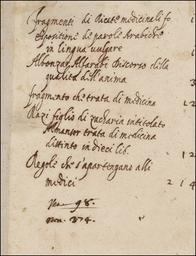 fragmenti di Ricete medicinali fo
Espositioni di parole Arabiche
in lingua volgare
Albonzar Alfarabi discorso della
qualità dell'anima
3
fragmento che trata di medicina
12
Razi figlio di zacharia intitolato
Almansor trata di medicina
distinto in dieci lib.
12
Regole che s'apartengano alli
medici
2 1 4
98.
374.